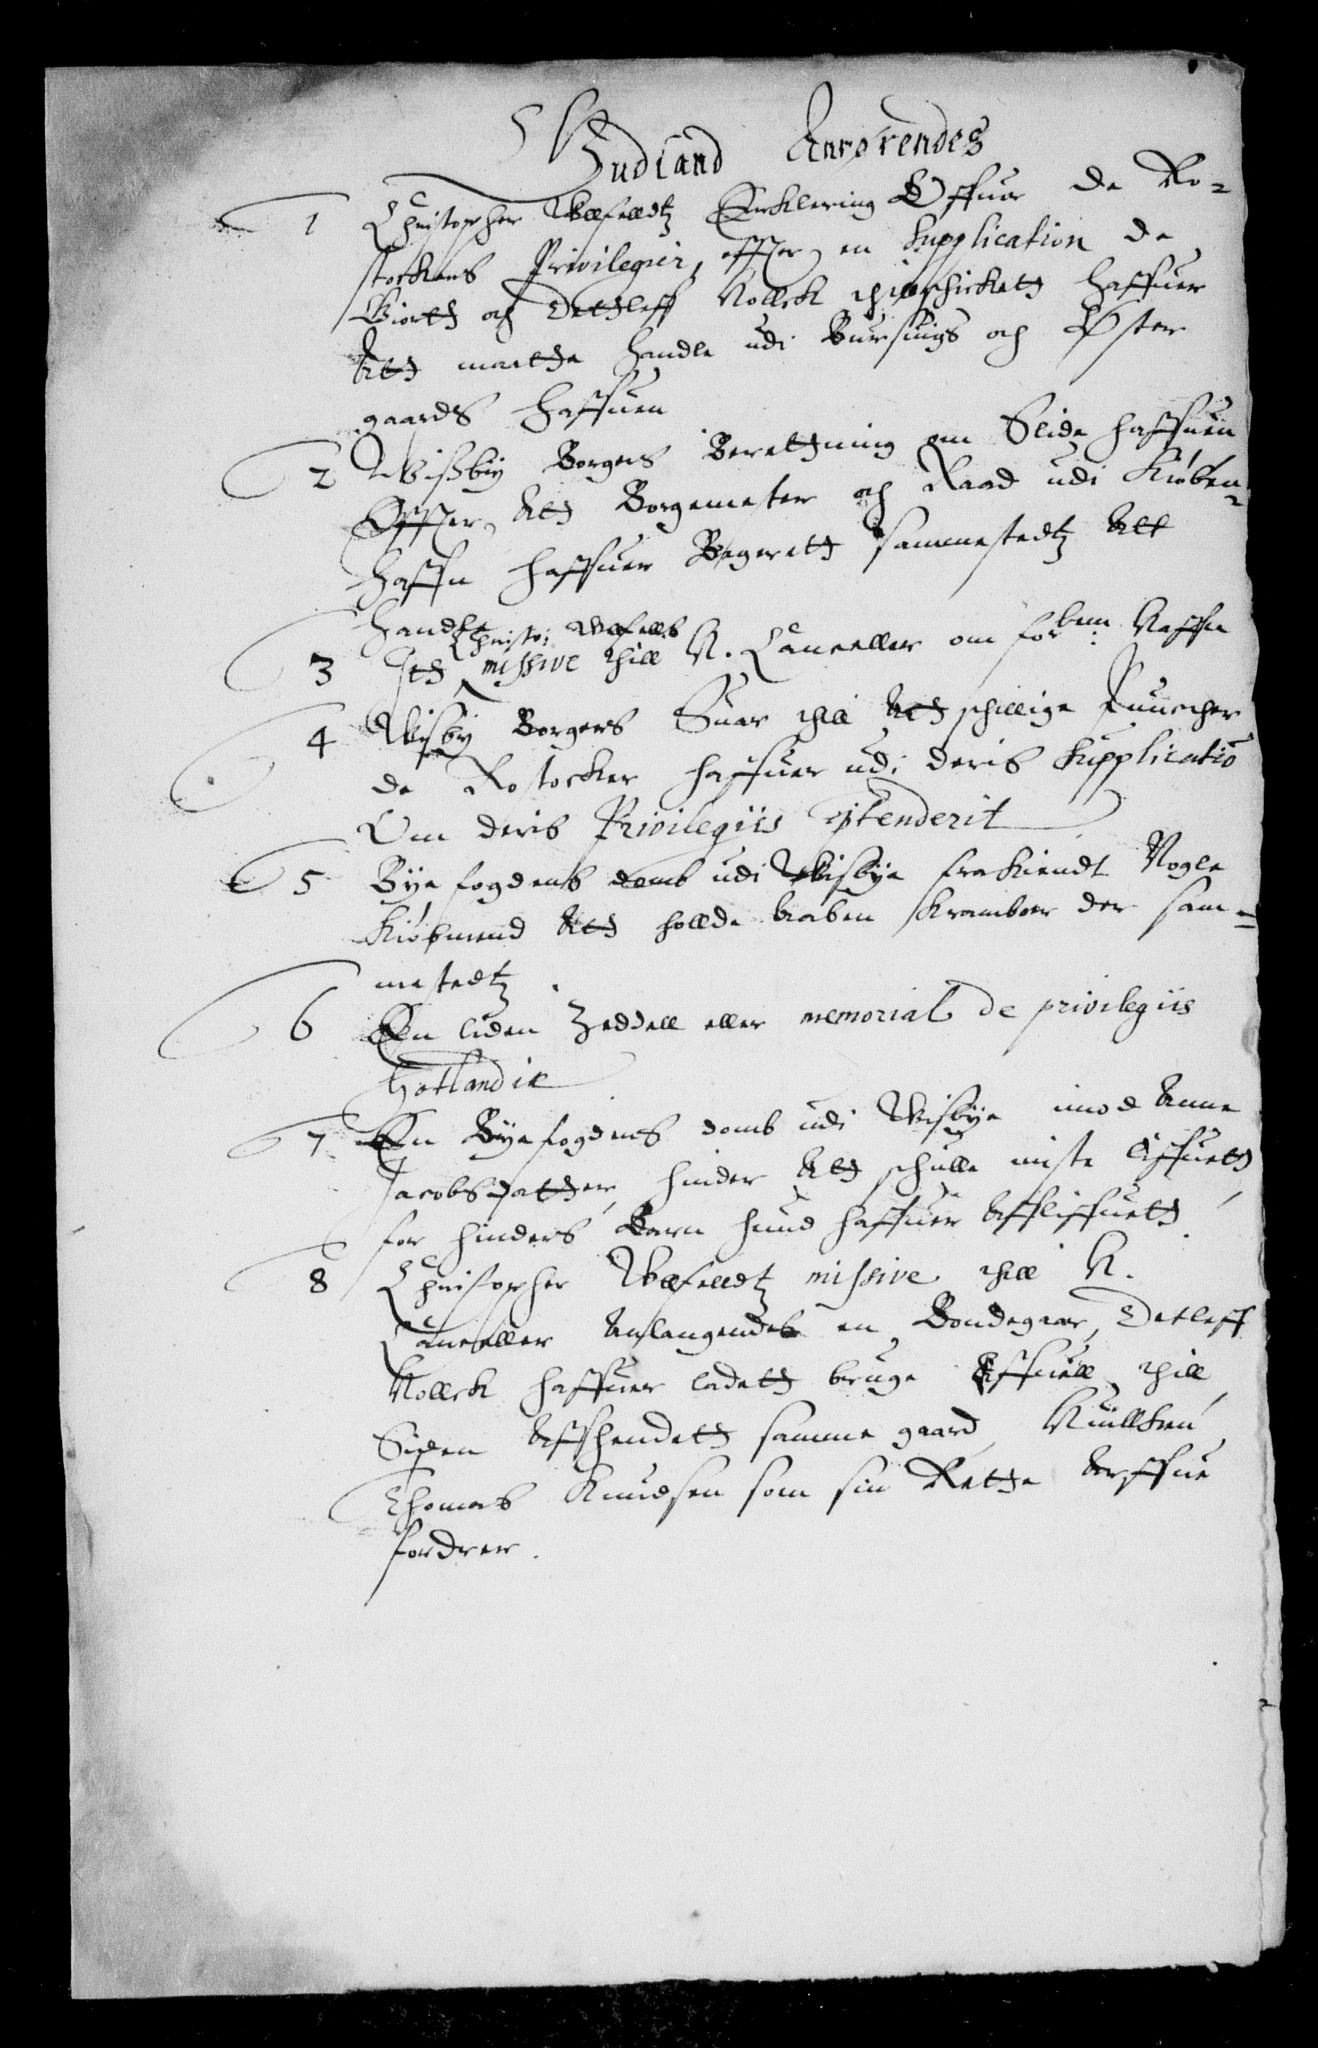 Gudland Anrørendes
1 Christopher Ulfelldtz Erklering Offuer de Ro-
stockers Privilegier, effter en Supplication de
giortt och Dettleff Kollck thillschickett haffuer
Att maatte handle udi Bursuigs och Øster
gaards haffuen
2 Wißby Borgers Berettning om Slide haffuen
Effter Att Borgemester och Raad udi Kiøben-
haffn haffuer Begerett sammestedtz Att
handle
3 Itt Christo: Ulfellds missive thill K. Canceller om forbem: haffn
4 Wisby Borgers Suar thill Attschillige
de Rostocker haffuer udi deris Supplicatio
Om deris Privilegiis
5 Byefogdens domb udi Wisbye frakiendt Nogle
Kiøbmend Att hollde aaben kramboer der sam-
mestedtz
6 En liden Zeddell eller memorial de privilegiis
Gotlandiæ
7 En Byefogdens domb udi Wisbye imod Anne
Jacobsdatter, hinder Att schulle miste Liffuett
for hinders Barn hund haffuer Affliffuett
8 Christopher Ulfelldtz missive thill K.
Canceller Anlangendes en Bondegaar, Detleff
Kollck haffuer ladett bruge Affuell thill
Siden Affhendett samme gaard,
Thomas Knudsen som sin Rette Arffue
fordrer.